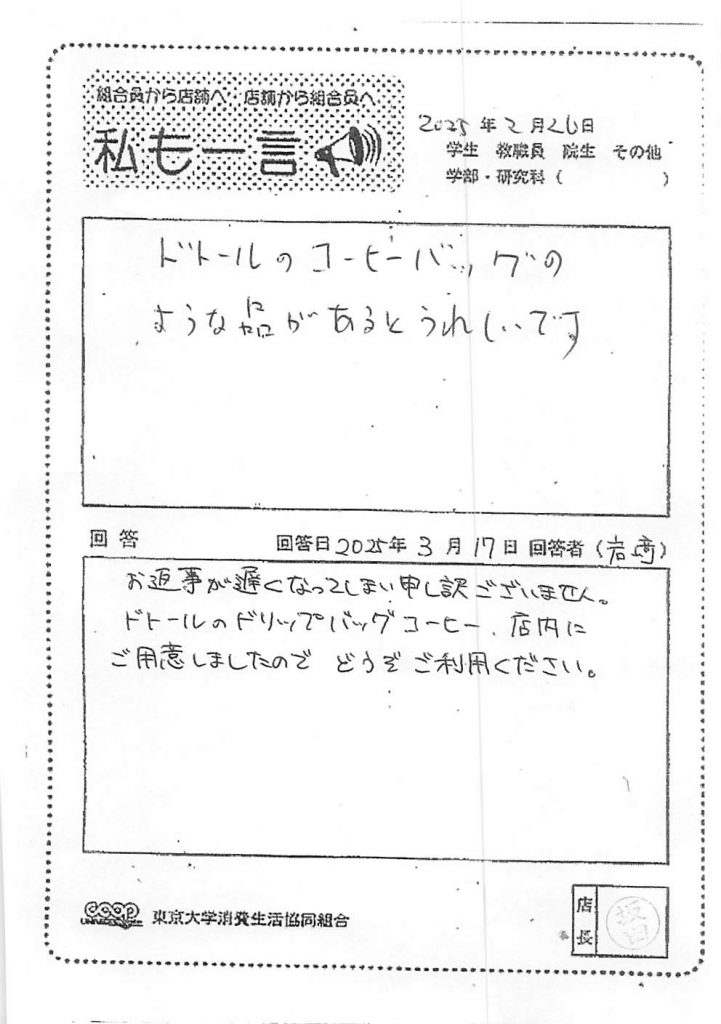 組合員から店舗へ 店舗から組合員へ
私も一言
2025年2月26日
学生 教職員 院生 その他
学部・研究科（ ）
ドトールのコーヒーバッグの
ような品があるとうれしいです
回答 回答日2025年3月17日 回答者（岩﨑）
お返事が遅くなってしまい申し訳ございません。
ドトールのドリップバッグコーヒー、店内に
ご用意しましたので どうぞご利用ください。
東京大学消費生活協同組合
店長
坂田